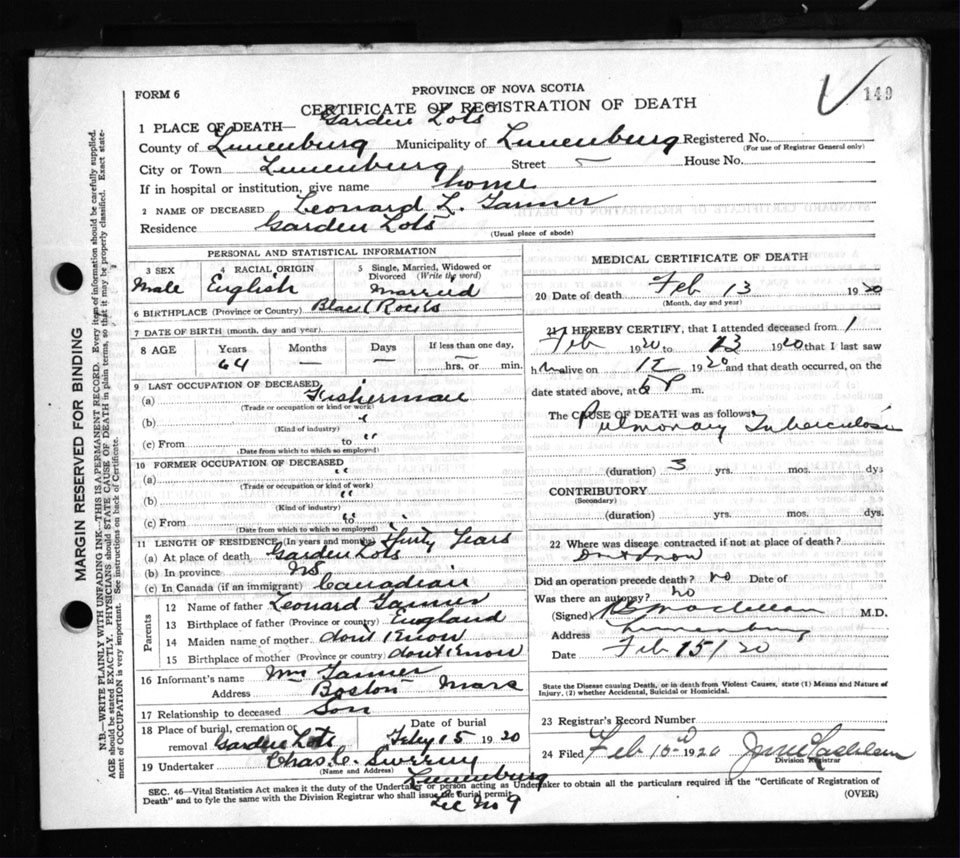 149
FORM 6
PROVINCE OF NOVA SCOTIA
CERTIFICATE OF REGISTRATION OF DEATH
1 PLACE OF DEATH— Garden Lots
County of Lunenburg Municipality of Lunenburg Registered No.
(For use of Registrar General only)
City or Town Lunenburg Street House No.
If in hospital or institution, give name home
2 NAME OF DECEASED Leonard L. Tanner
Residence Garden Lots
(Usual place of abode)
PERSONAL AND STATISTICAL INFORMATION
3 SEX 4 RACIAL ORIGIN 5 Single, Married, Widowed or Divorced (Write the word)
Male English Married
6 BIRTHPLACE (Province or Country) Black Rocks
7 DATE OF BIRTH (month, day and year)
8 AGE Years Months Days If less than one day,
64 — — hrs. or min.
9 LAST OCCUPATION OF DECEASED
(a) Fisherman
(Trade or occupation or kind or work)
(b) "
(Kind of industry)
(c) From to "
(Date from which to which so employed)
10 FORMER OCCUPATION OF DECEASED
(a) "
(Trade or occupation or kind of work)
(b) "
(Kind of industry)
(c) From to
(Date from which to which so employed)
11 LENGTH OF RESIDENCE (In years and months) Thirty Years
(a) At place of death Garden Lots
(b) In province NS
(c) In Canada (if an immigrant) Canadian
Parents
12 Name of father Leonard Tanner
13 Birthplace of father (Province or country) England
14 Maiden name of mother dont Know
15 Birthplace of mother (Province or country) dont Know
16 Informant's name Tanner
Address Boston Mass
17 Relationship to deceased Son
18 Place of burial, cremation or removal Garden Lots Date of burial Feby 15 1920
19 Undertaker Chas. C.
(Name and Address) Lunenburg
Lic No 9
MEDICAL CERTIFICATE OF DEATH
20 Date of death Feb 13 1920
(Month, day and year)
21 I HEREBY CERTIFY, that I attended deceased from 1
Feb 1920 to 13 1920 that I last saw
him alive on 12 1920 and that death occurred, on the
date stated above, at P m.
The CAUSE OF DEATH was as follows
Pulmonary Tuberculosis
(duration) 3 yrs. mos. dys
CONTRIBUTORY
(Secondary)
(duration) yrs. mos. dys.
22 Where was disease contracted if not at place of death?
Dont know
Did an operation precede death? no Date of
Was there an autopsy? no
(Signed) M.D.
Address Lunenburg
Date Feb 15/20
State the Disease causing Death, or in death from Violent Causes, state (1) Means and Nature of Injury, (2) whether Accidental, Suicidal or Homicidal.
23 Registrar's Record Number
24 Filed Feb 1920
Division Registrar
SEC. 46—Vital Statistics Act makes it the duty of the Undertaker or person acting as Undertaker to obtain all the particulars required in the "Certificate of Registration of
Death" and to fyle the same with the Division Registrar who shall issue the burial permit.
(OVER)
MARGIN RESERVED FOR BINDING
N.B.—WRITE PLAINLY WITH UNFADING INK—THIS IS A PERMANENT RECORD. Every item of information should be carefully supplied.
AGE should be stated EXACTLY. PHYSICIANS should STATE CAUSE OF DEATH in plain terms, so that it may be properly classified. Exact statement of OCCUPATION is very important. See instructions on back of Certificate.